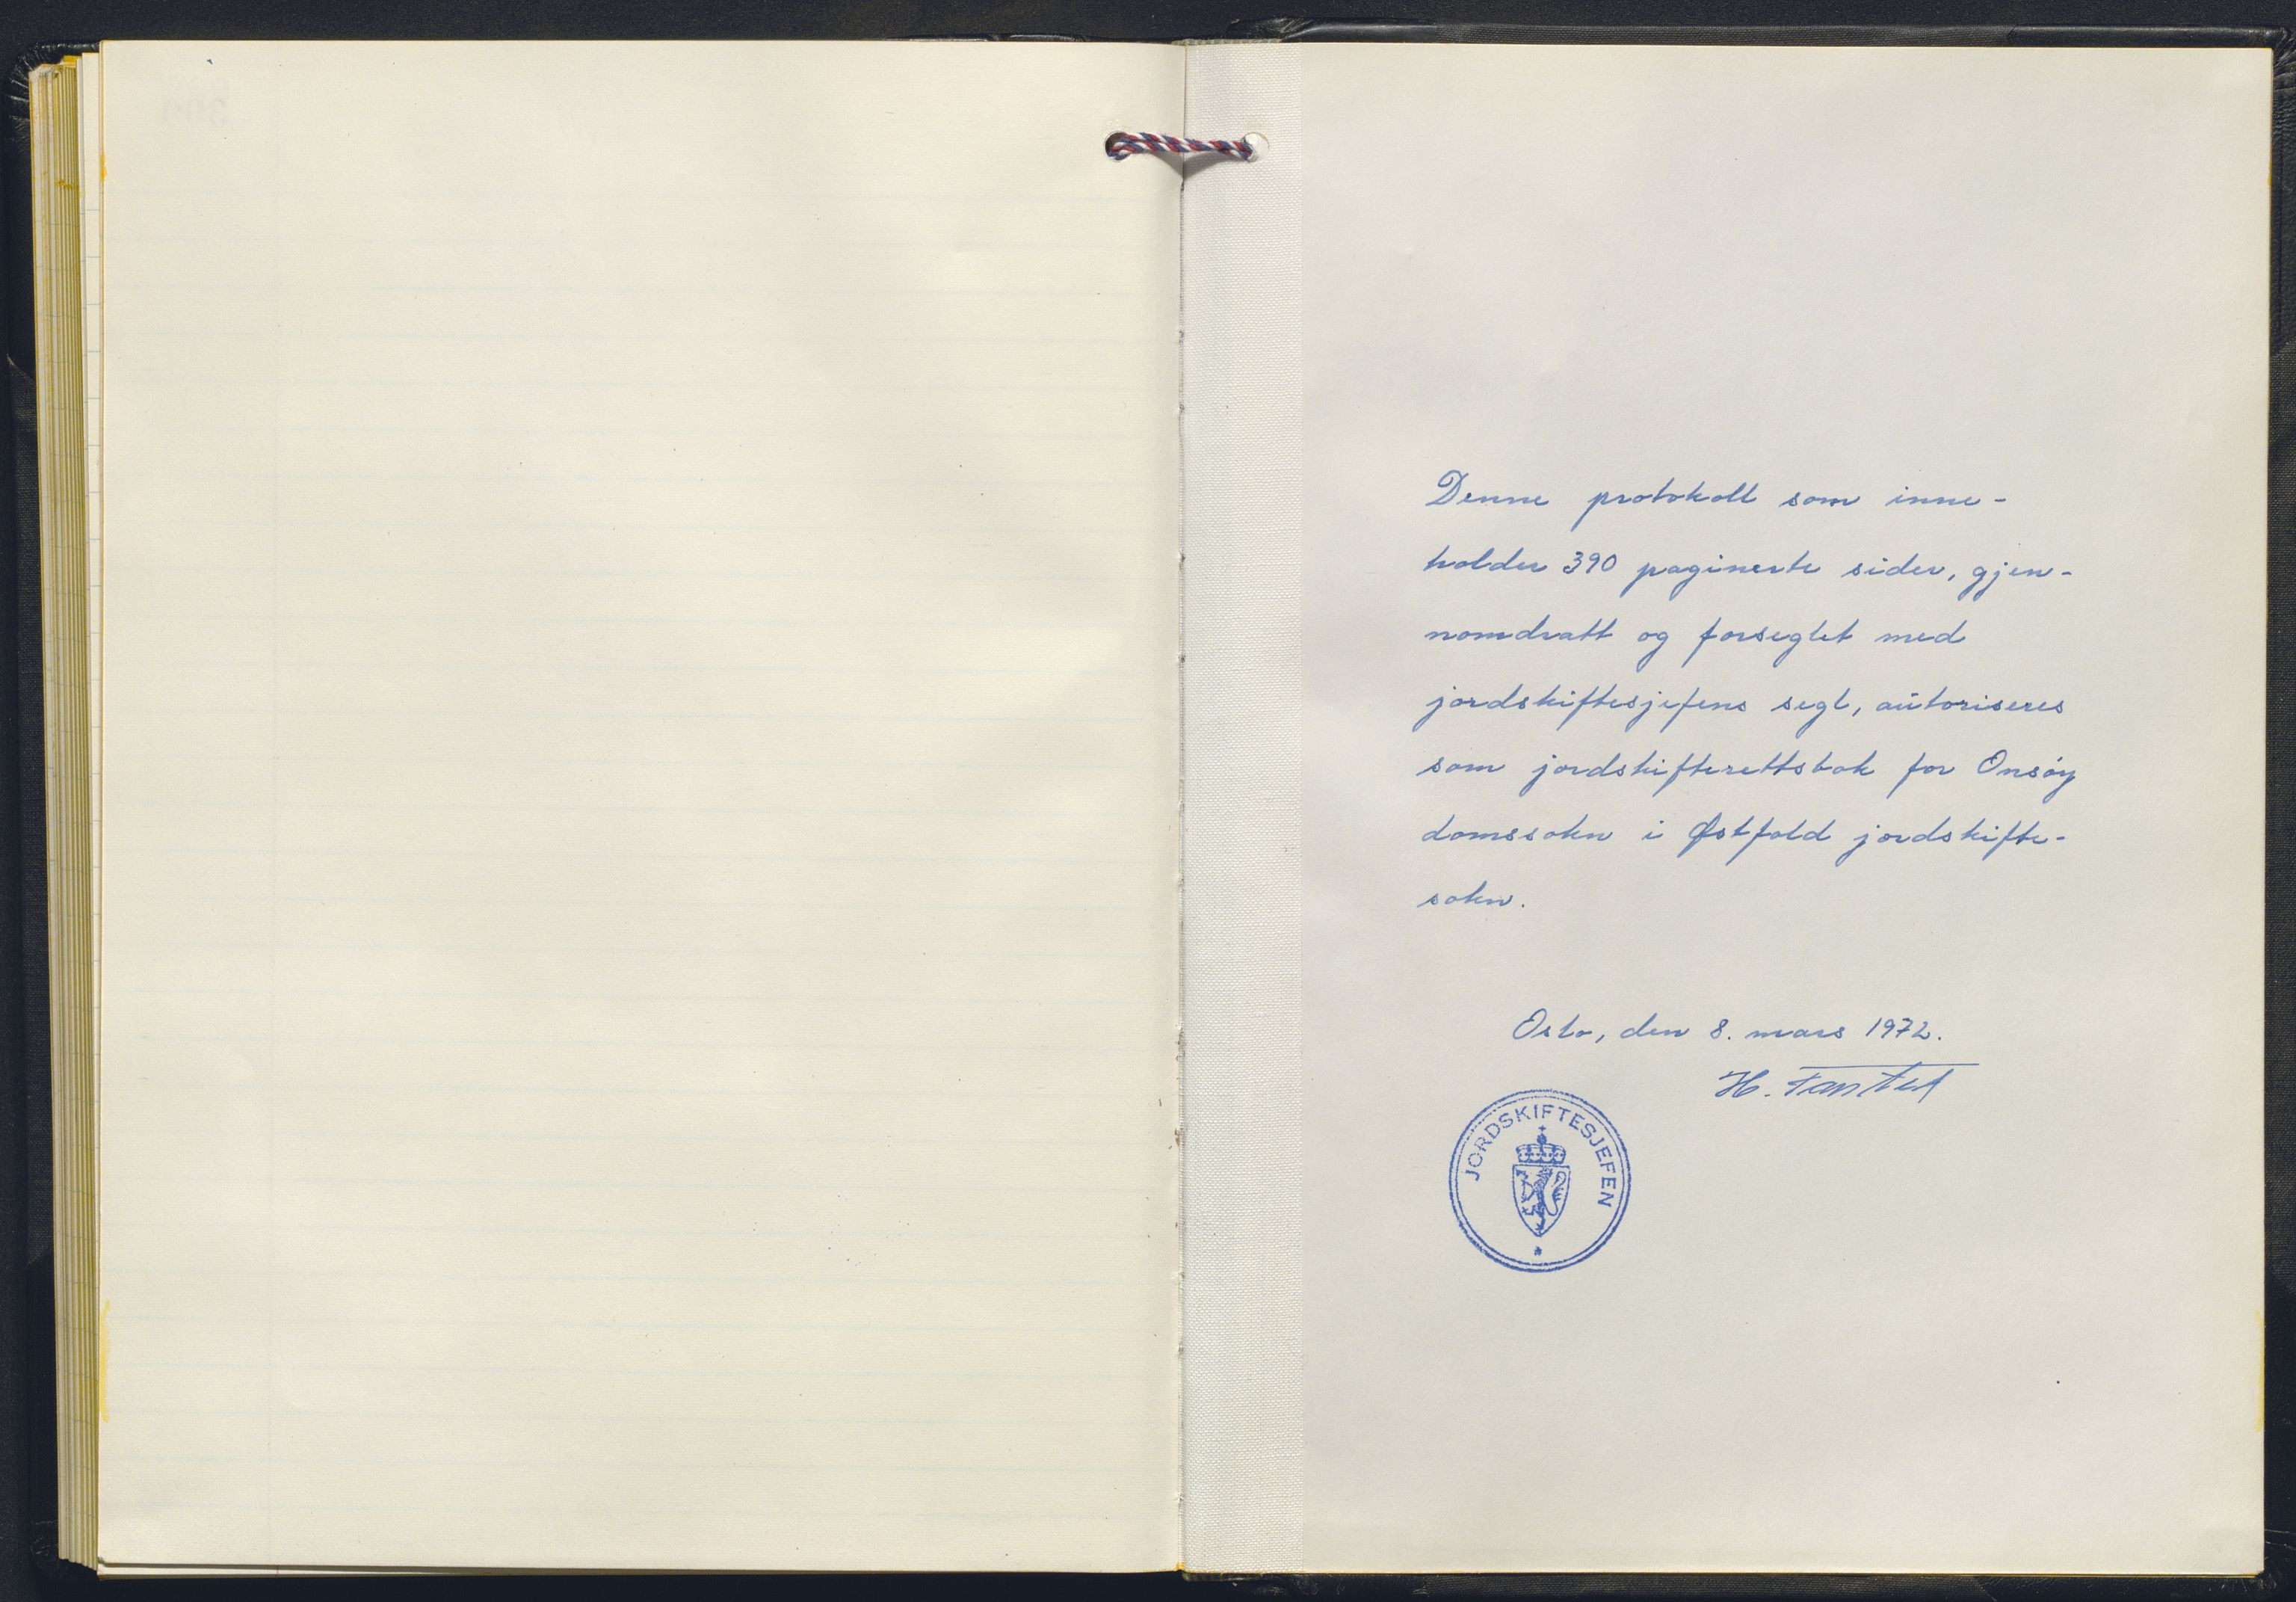 Denne protokoll som inne-
holder 390 paginerte sider, gjen-
nomdratt og forseglet med
jordskiftesjefens segl, autoriseres
som jordskifterettsbok for Onsøy
domssokn i Østfold jordskifte-
sokn.
Oslo, den 8. mars 1972.
H.
JORDSKIFTESJEFEN